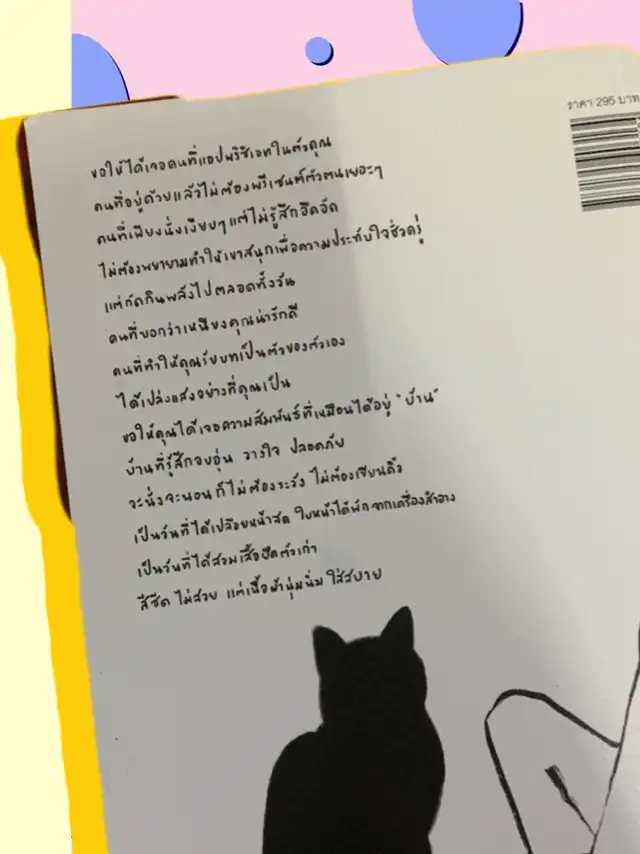 ราคา 295 บาท
ขอให้ได้เจอคนที่แอปพริชิเอทในตัวคุณ
คนที่อยู่ด้วยแล้วไม่ต้องพรีเซนท์ตัวตนเยอะๆ
คนที่เพียงนั่งเงียบๆ แต่ไม่รู้สึกอึดอัด
ไม่ต้องพยายามทำให้เขาสนุกเพื่อความประทับใจชั่วครู่
แต่กัดกินพลังไปตลอดทั้งวัน
คนที่บอกว่าเหนียงคุณน่ารักดี
คนที่ทำให้คุณรับบทเป็นตัวของตัวเอง
ได้เปล่งแสงอย่างที่คุณเป็น
ขอให้คุณได้เจอความสัมพันธ์ที่เหมือนได้อยู่ "บ้าน"
บ้านที่รู้สึกอบอุ่น วางใจ ปลอดภัย
จะนั่งจะนอนก็ไม่ต้องระวัง ไม่ต้องเขียนคิ้ว
เป็นวันที่ได้เปลือยหน้าสด ใบหน้าได้พักจากเครื่องสำอาง
เป็นวันที่ได้สวมเสื้อยืดตัวเก่า
สีซีด ไม่สวย แต่เนื้อผ้านุ่มนิ่ม ใส่สบาย